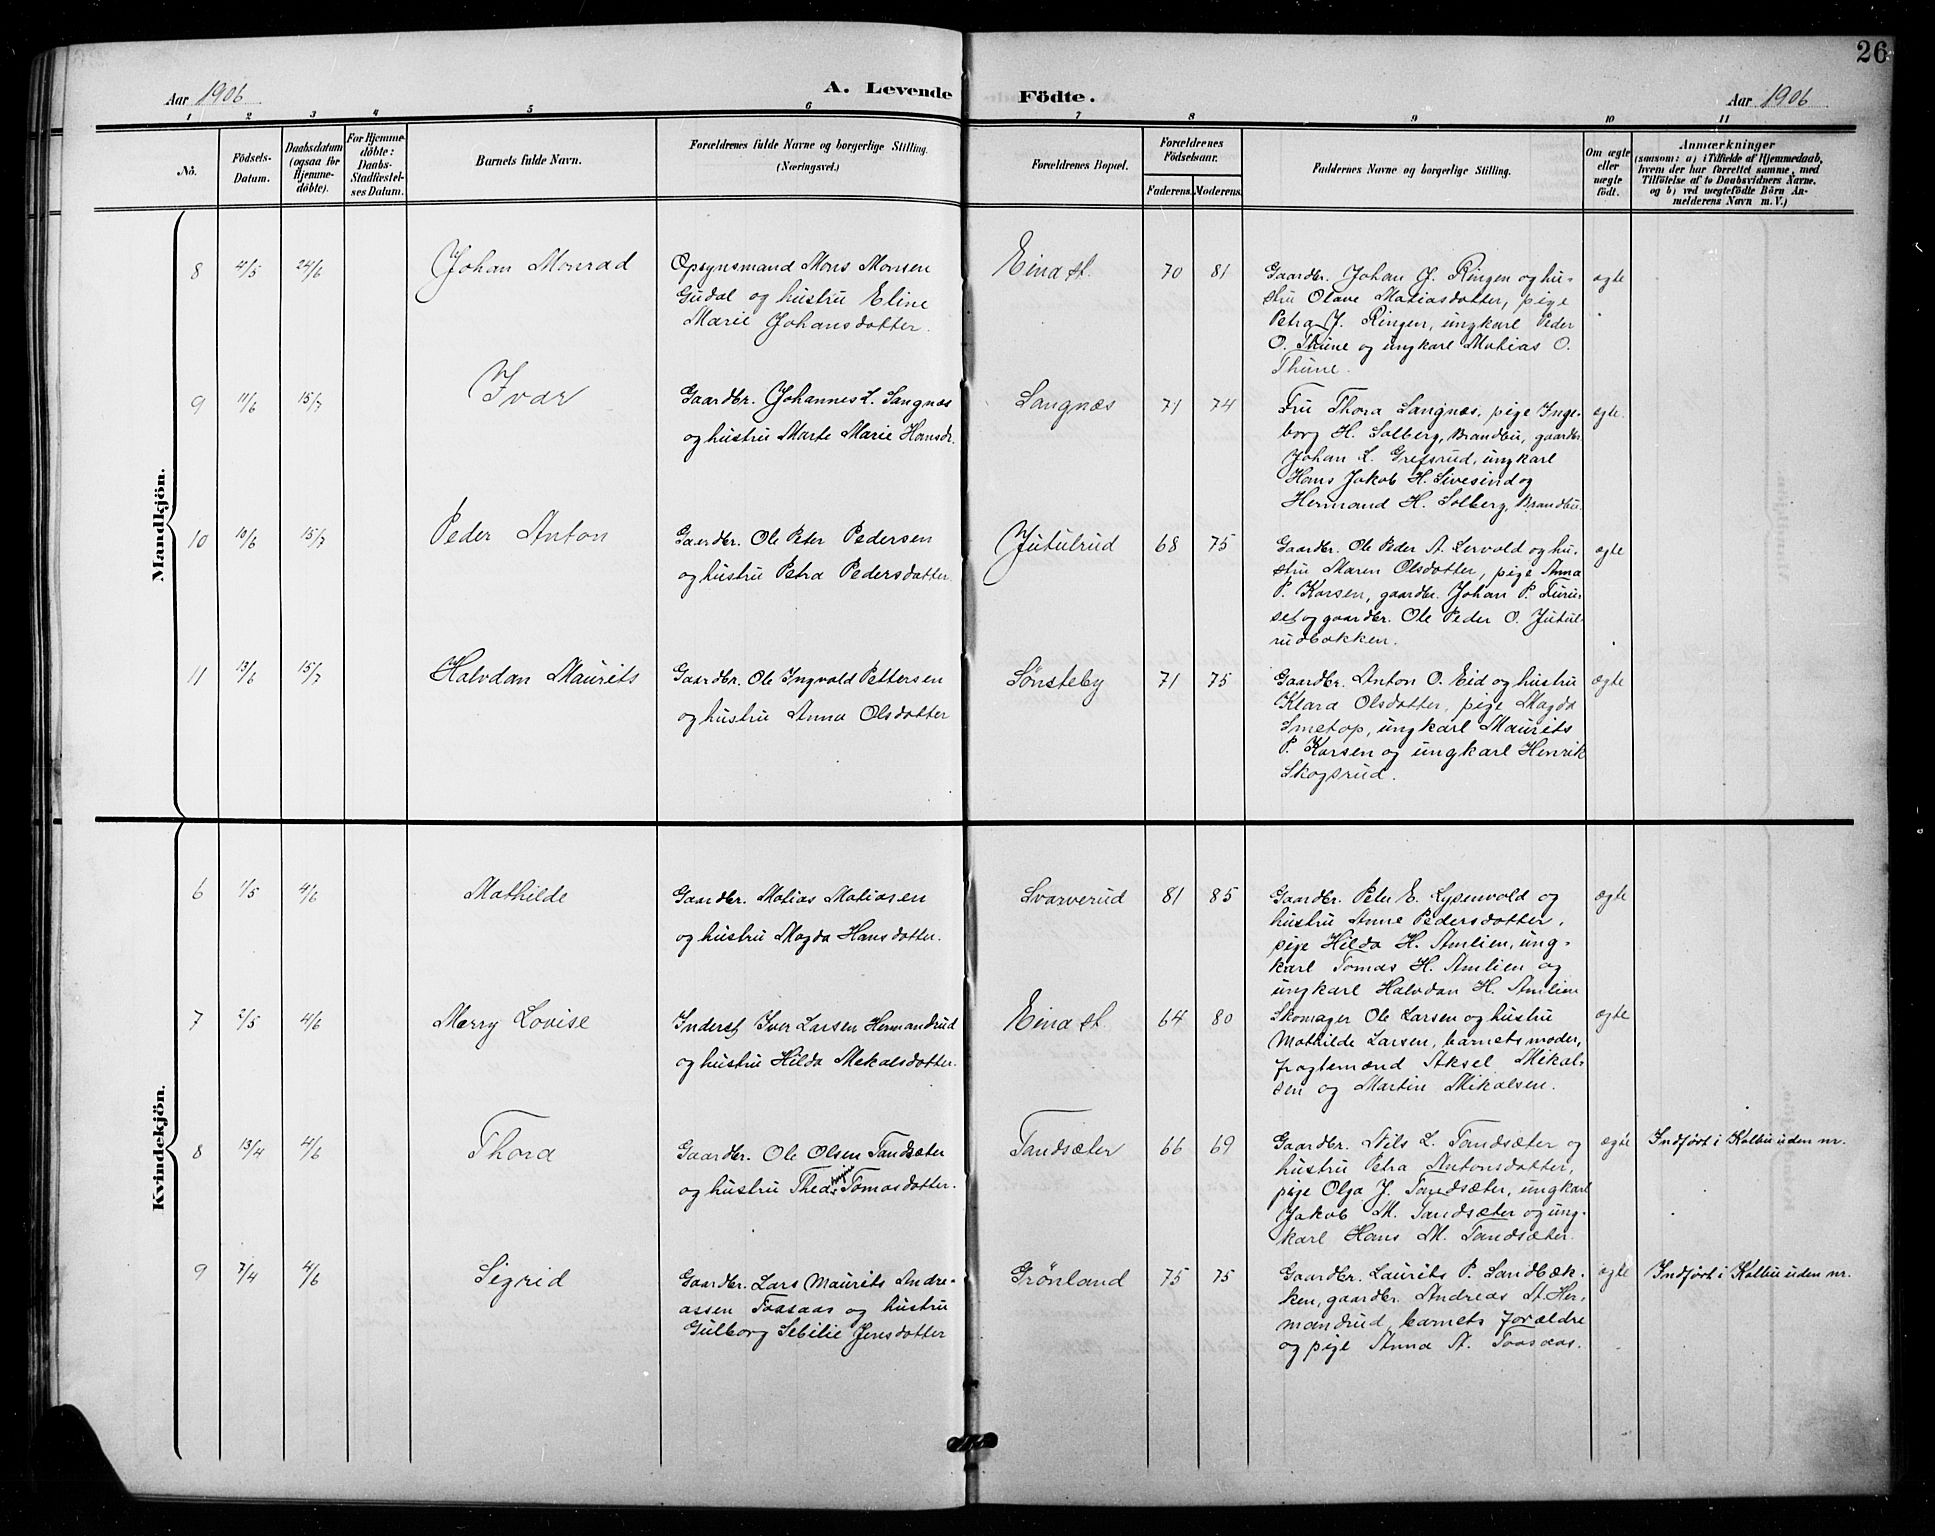 26
Aar 1906
A. Levende Födte.
Aar 1906
1 2 3 4 5 6 7 8 9 10 11
No.
Födsels-
Datum.
Daabsdatum
(ogsaa for
Hjemme-
döbte).
For Hjemme-
döbte:
Daabs-
Stadfæstel-
ses Datum.
Barnets fulde Navn.
Forældrenes fulde Navne og borgerlige Stilling.
(Næringsvei.)
Forældrenes Bopæl.
Forældrenes
Födselsaar.
Faderens. Moderens.
Faddernes Navne og borgerlige Stilling.
Om ægte
eller
uægte
födt.
Anmærkninger
(saasom: a) i Tilfælde af Hjemmedaab,
hvem der har forrettet samme, med
Tilföielse af to Daabsvidners Navne,
og b) ved uægtefödte Börn An-
melderens Navn m. V.)
Mandkjön.
8 4/5 24/6 Johan Monrad
Opsynsmand Mons Monsen
Gudal og hustru Eline
Marie Johansdotter.
Eina st. 70 81
Gaardbr. Johan J. Ringen og hu-
stru Olave Matiasdotter, pige
Petra J. Ringen, ungkarl Peder
O. Thune og ungkarl Matias O.
Thune.
ægte
9 11/6 15/7 Ivar
Gaardbr. Johannes L. Langnæs
og hustru Marte Marie Hansdr.
Langnæs 71 74
Fru Thora Langnæs, pige Inge-
borg H. Solberg, Brandbu, gaardbr.
Johan L. Grefsrud, ungkarl
Hans Jakob H. Sivesind og
Hermand H. Solberg, Brandbu.
ægte.
10 10/6 15/7 Peder Anton
Gaardbr. Ole Peter Pedersen
og hustru Petra Pedersdotter.
Jutulrud 68 75
Gaardbr. Ole Peder A. Lervold og hu-
stru Maren Olsdotter, pige Anna
P. Korsen, gaardbr. Johan P. Furu-
set og gaardbr. Ole Peder O. Jutul-
rudbakken.
ægte
11 13/6 15/7 Halvdan Maurits
Gaardbr. Ole Ingvald Pettersen
og hustru Anna Olsdotter
Sønsteby 71 75
Gaardbr. Anton O. Eid og hustru
Klara Olsdotter, pige Magda
Smetop, ungkarl Maurits
P. Korsen og ungkarl Henrik
Skogsrud.
ægte
Kvindekjön.
6 1/5 4/6 Mathilde
Gaardbr. Matias Matiasen
og hustru Magda Hansdotter.
Svarverud 81 85
Gaardbr. Peter E. Lysenvold og
hustru Anne Pedersdotter,
pige Hilda H. Amlien, ung-
karl Tomas H. Amlien og
ungkarl Halvdan H. Amlien
ægte
7 2/5 4/6 Merry Lovise
Inderst Iver Larsen Hermandrud
og hustru Hilda Mekalsdotter.
Eina st. 64 80
Skomager Ole Larsen og hustru
Mathilde Larsen, barnets moder,
fragtemænd Aksel Mikal-
sen og Martin Mikalsen.
ægte
8 13/4 4/6 Thora
Gaardbr. Ole Olsen Tandsæter
og hustru Thea Tomasdotter.
Tandsæter 66 69
Gaardbr. Nils L. Tandsæter og
hustru Petra Antonsdotter,
pige Olga J. Tandsæter, ungkarl
Jakob M. Tandsæter og ung-
karl Hans M. Tandsæter.
ægte
Indført i Kolbu uden nr.
9 7/4 4/6 Sigrid
Gaardbr. Lars Maurits Andre-
assen Taasaas og hustru
Gulborg Sebilie Jensdotter
Grønland 75 75
Gaardbr. Laurits P. Sandbæk-
ken, gaardbr. Andreas A. Her-
mandrud, barnets forældre
og pige Anna A. Taasaas.
ægte
Indført i Kolbu uden nr.